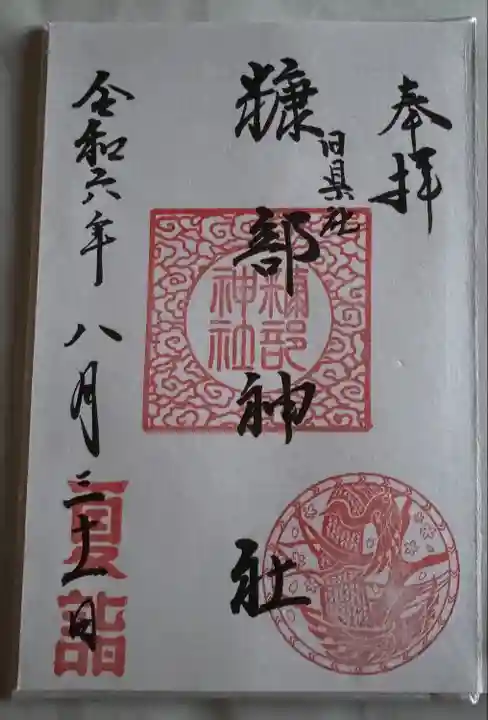 奉拝
旧県社
糠部神社
糠部神社
令和六年 八月三十一日
夏詣